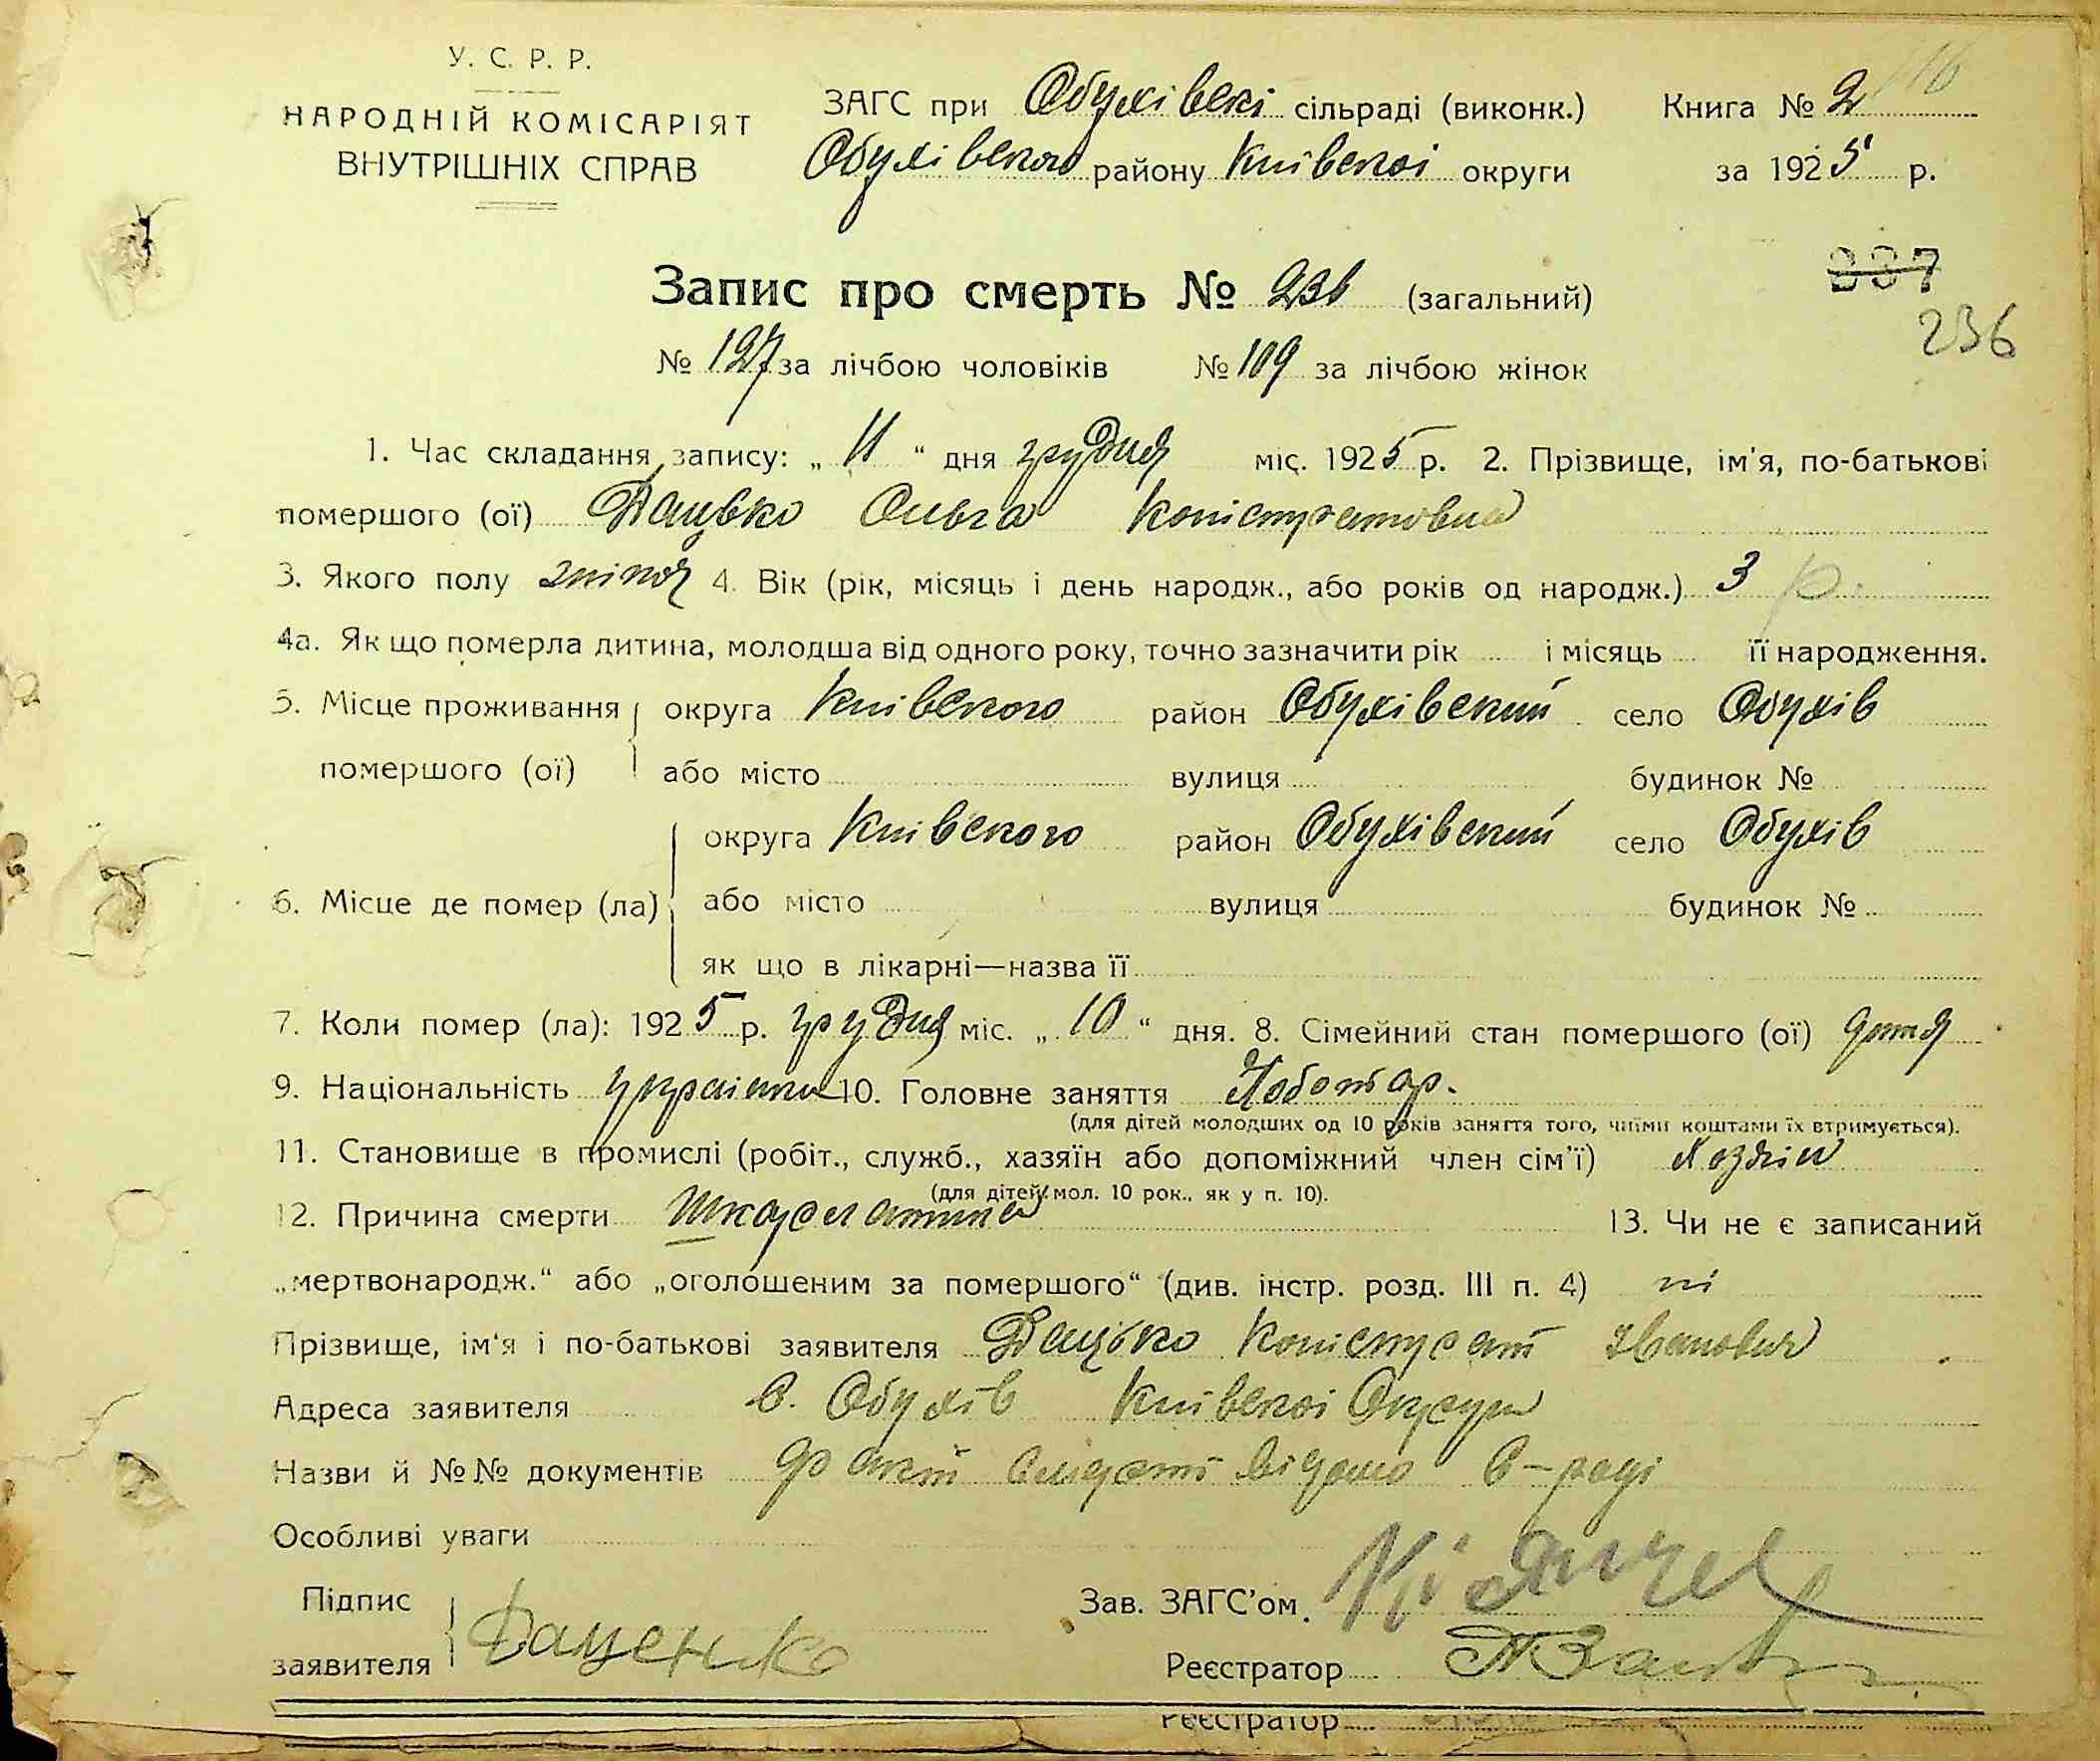 У. С. Р. Р.
НАРОДНІЙ КОМІСАРІЯТ
ВНУТРІШНІХ СПРАВ
ЗАГС при Обухівскі сільраді (виконк.)
Обухівского району Київскої округи
Книга № 2 16
за 1925 р.
337
Запис про смерть № 236 (загальний)
236
№ 127 за лічбою чоловіків № 109 за лічбою жінок
1. Час складання запису: „ 11 “ дня грудня міс. 1925 р. 2. Прізвище, ім'я, по-батькові
помершого (ої) Дацько Ольга Калістратовна
3. Якого полу жіноч 4. Вік (рік, місяць і день народж., або років од народж.) 3 р.
4а. Як що померла дитина, молодша від одного року, точно зазначити рік і місяць її народження.
5. Місце проживання округа Київского район Обухівский село Обухів
помершого (ої) або місто вулиця будинок №
округа Київского район Обухівский село Обухів
6. Місце де помер (ла) або місто вулиця будинок №
як що в лікарні—назва її
7. Коли помер (ла): 1925 р. грудня міс. „ 10 “ дня. 8. Сімейний стан помершого (ої) дитя
9. Національність 10. Головне заняття
(для дітей молодших од 10 років заняття того, чиїми коштами їх втримується).
11. Становище в промислі (робіт., служб., хазяїн або допоміжний член сім'ї)
(для дітей мол. 10 рок., як у п. 10).
12. Причина смерти Шкарлатина 13. Чи не є записаний
„мертвонародж.“ або „оголошеним за помершого“ (див. інстр. розд. III п. 4) ні
Прізвище, ім'я і по-батькові заявителя Дацько Калістрат Іванович
Адреса заявителя с. Обухів Київскої Округи
Назви й №№ документів факт смерті відомо с-раді
Особливі уваги
Підпис
заявителя Даценко
Зав. ЗАГС'ом.
Реєстратор
Реєстратор